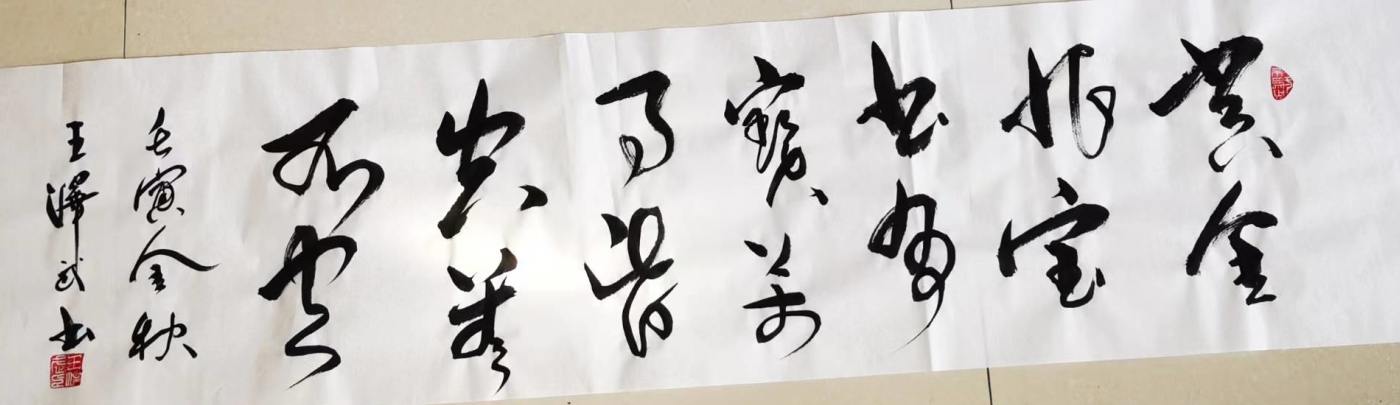 黄金
非宝
书为
寳萬
事皆
空善
不空
壬寅金秋
王澤武书